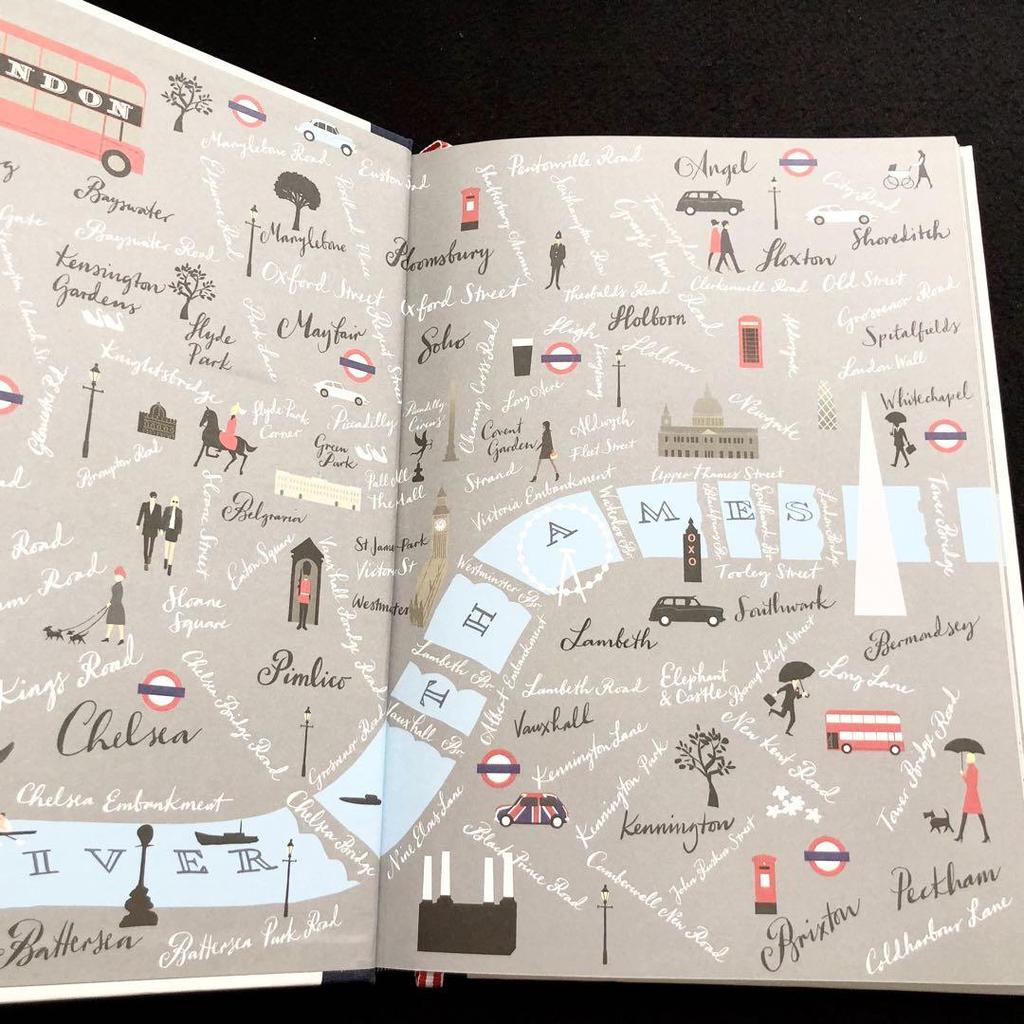 NDON
Marylebone Road
Bayswater
Bayswater Road
Edgware Road
Marylebone
Portland Place
Kensington
Gardens
Oxford Street
Hyde
Park
Park Lane
Mayfair
Regent Street
Knightsbridge
Gloucester Rd
Hyde Park
Corner
Piccadilly
Green
Park
Pall Mall
The Mall
Brompton Road
Sloane Street
Belgravia
Eaton Square
Vauxhall Bridge Road
St James Park
Victoria St
Westminster
Road
Road
Sloane
Square
Kings Road
Pimlico
Chelsea
Chelsea Bridge Road
Grosvenor Road
Chelsea Embankment
Chelsea Bridge
IVER
Battersea
Battersea Park Road
Pentonville Road
Angel
City Road
Shaftesbury Avenue
Southampton Row
Grays Inn
Farringdon
Shoreditch
Bloomsbury
Hoxton
Oxford Street
Theobald's Road
Clerkenwell Road
Old Street
Grosvenor Road
Soho
High
Holborn
Holborn
Kingsway
Aldersgate
Spitalfields
London Wall
Charing Cross Road
Long Acre
Piccadilly
Circus
Covent
Garden
Aldwych
Fleet Street
Newgate
Whitechapel
Strand
Upper Thames Street
Victoria Embankment
THAMES
Waterloo Br
Blackfriars Br
Southwark Br
London Br
Tower Bridge
OXO
Tooley Street
Westminster Br
Lambeth
Southwark
Bermondsey
Lambeth Br
Albert Embankment
Lambeth Road
Elephant
& Castle
Borough High Street
Long Lane
Vauxhall Br
Vauxhall
New Kent Road
Tower Bridge Road
Kennington Lane
Kennington Park
Nine Elms Lane
Kennington
Black Prince Road
Camberwell New Road
John Ruskin Street
Brixton
Peckham
Coldharbour Lane